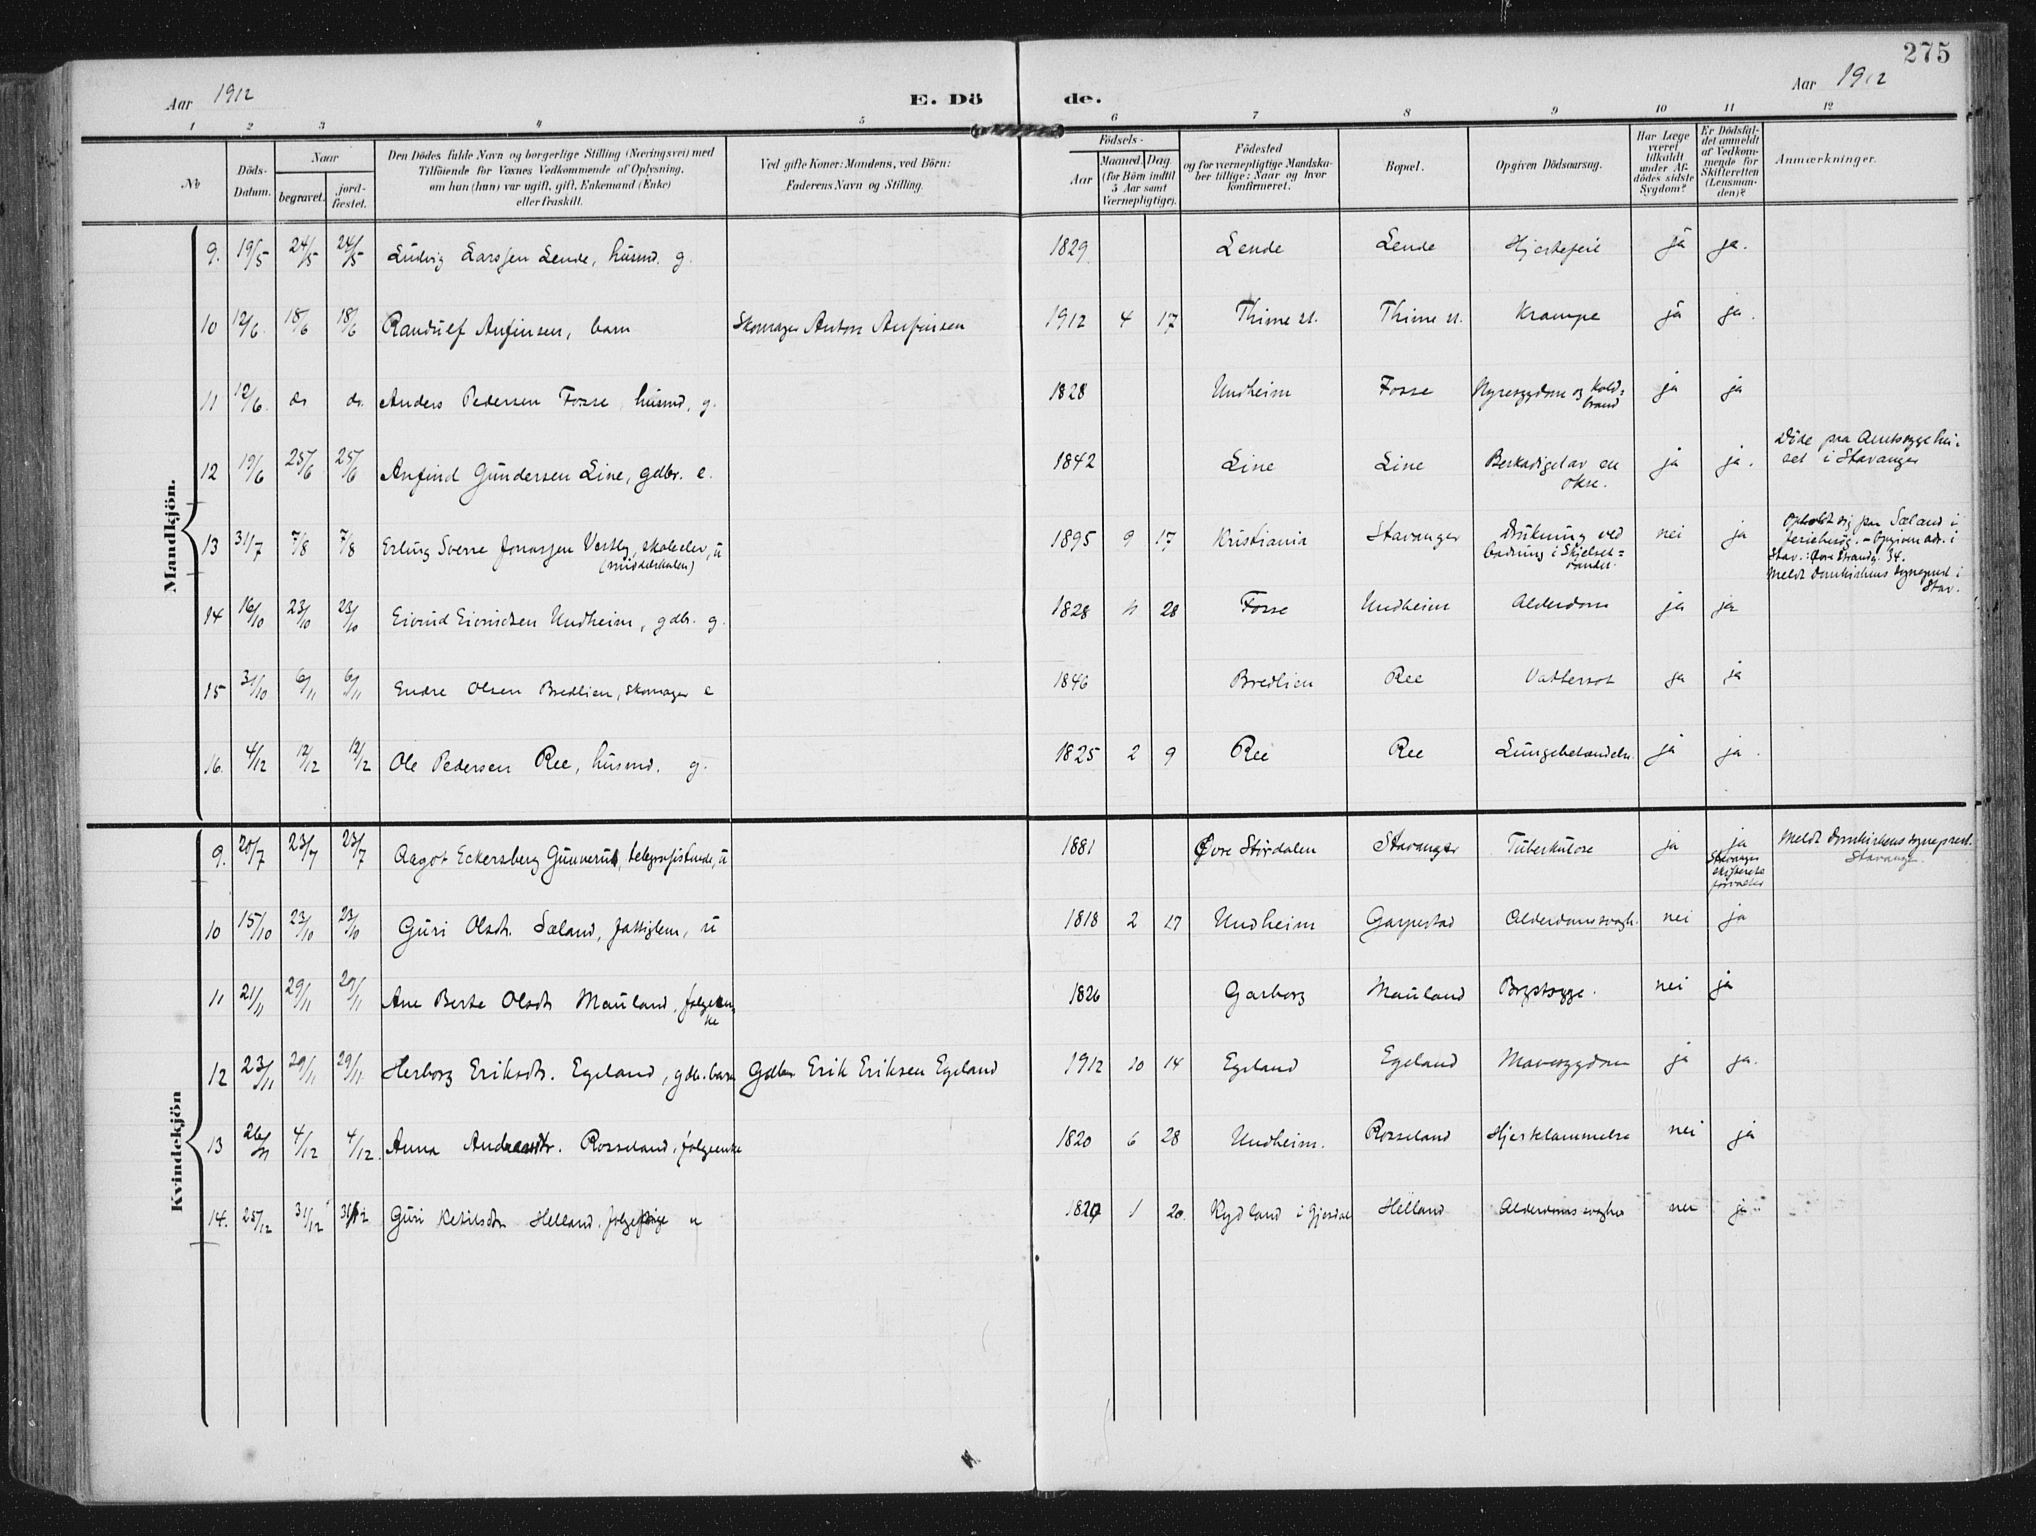 275
Aar 1912 E. Dö de. Aar 1912
1 2 3 4 5 6 7 8 9 10 11 12
No
Döds-
Datum.
Naar
begravet.
jord-
fæstet.
Den Dödes fulde Navn og borgerlige Stilling (Næringsvei) med
Tilföiende for Voxnes Vedkommende af Oplysning,
om han (hun) var ugift, gift, Enkemand (Enke)
eller fraskilt.
Ved gifte Koner: Mandens, ved Börn:
Faderens Navn og Stilling.
Födsels-
Aar
Maaned. Dag.
(for Börn indtil
5 Aar samt
Værnepligtige).
Födested
og for værnepligtige Mandska-
ber tillige: Naar og hvor
konfirmeret.
Bopæl.
Opgiven Dödsaarsag.
Har Læge
været
tilkaldt
under Af-
dödes sidste
Sygdom?
Er Dödsfal-
det anmeldt
af Vedkom-
mende for
Skifteretten
(Lensman-
den)?
Anmærkninger.
Mandkjön.
9. 19/5 24/5 24/5 Ludvig Larssen Lende, husmd. g. 1829 Lende Lende Hjertefeil ja ja.
10 12/6. 18/6 18/6 Randulf Anfinsen, barn Skomager Anton Anfinsen 1912 4 17 Thime st. Thime st. Krampe ja ja.
11 12/6. do do. Anders Pedersen Fosse, husmd, g. 1828 Undheim Fosse Nyresygdom og Kold=
brand ja ja
12 19/6 25/6 25/6 Anfind Gundersen Line, gdbr. e. 1842 Line Line Beskadiget av en
okse. ja ja. Døde paa Amtssygehu-
set i Stavanger
13 31/7 7/8 7/8 Erling Sverre Jonassen Vestby, skoleelev, u
(middelskolen) 1895 9 17 Kristiania Stavanger Drukning ved
badning i Skjelset=
vandet. nei ja Opholdt sig paa Sæland i
feriebesøg. - Opgiven adr. i
Stav.: Øvre Strandg. 34.
Meldt Domkirkens sogneprest i
Stav.
14 16/10 23/10 23/10 Eivind Eivindsen Undheim, gdbr. g. 1828 4 28 Fosse Undheim Alderdom ja ja
15 31/10 6/11 6/11 Endre Olsen Bredlien, skomager e 1846 Bredlien Ree Vattersot ja ja
16. 4/12 12/12 12/12 Ole Pedersen Ree, husmd. g. 1825 2 9 Ree Ree Lungebetændelse. ja ja.
Kvindekjön
9. 20/7 23/7 23/7 Aagot Eckersberg Gunnerud, telegrafistinde, u 1881 Øvre Størdalen Stavanger Tuberkulose ja ja
Stavanger
skifterets
forvalter Meldt Domkirkens sogneprest.
Stavanger.
10 15/10 23/10 23/10 Guri Olsdt. Sæland, fattiglem, u 1818 2 17 Undheim Garpestad Alderdomssvagh. nei ja
11 21/11 29/11 29/11 Ane Berte Olsdt. Mauland, folgeen-
ke 1826 Garborg Mauland Brystsyge. nei ja
12 23/11 29/11 29/11 Herborg Eriksdt. Egeland, gdb. barn Gdbr Erik Eriksen Egeland 1912 10 14 Egeland Egeland Mavesygdom ja ja.
13 26/11 4/12 4/12. Anna Andreasdtr. Rosseland, folgeenke 1820 6 28 Undheim. Rosseland Hjertelammelse nei ja
14. 25/12 31/12 31/12 Guri Ketilsdtr Helland. u 1820 1 20. Kydland i Gjesdal Helland Alderdomssvaghed nei ja.